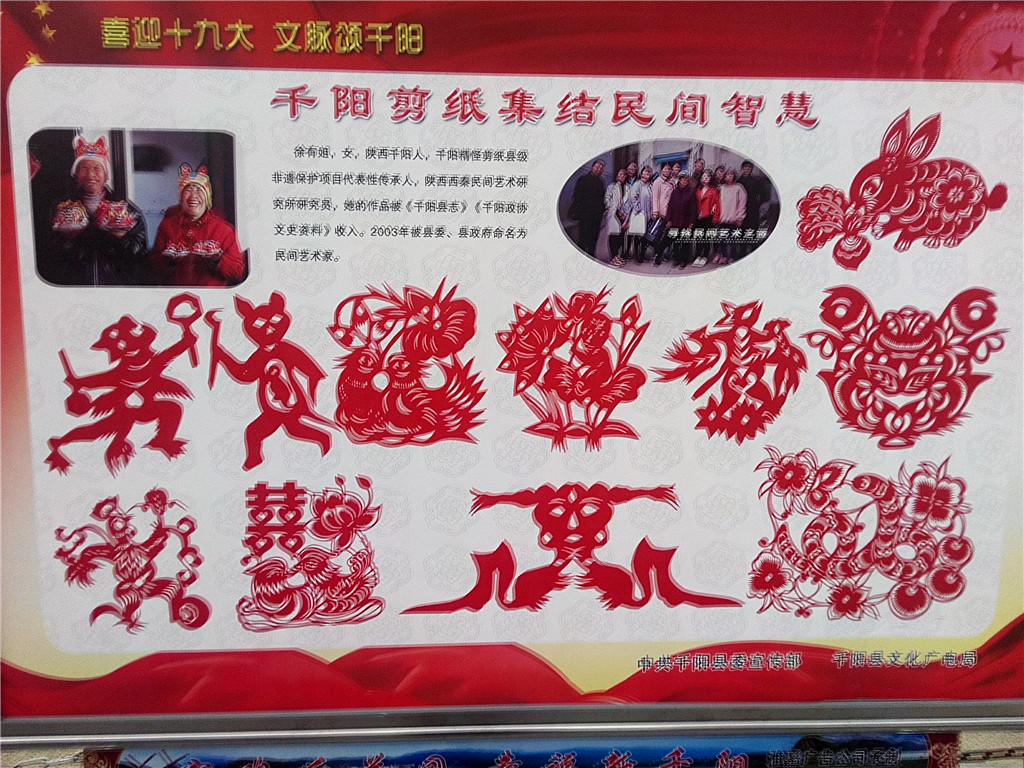 喜迎十九大 文脉颂千阳
千阳剪纸集结民间智慧
徐有姐，女，陕西千阳人，千阳精怪剪纸县级
非遗保护项目代表性传承人，陕西西秦民间艺术研
究所研究员，她的作品被《千阳县志》《千阳政协
文史资料》收入。2003年被县委、县政府命名为
民间艺术家。
民间艺术之
囍
中共千阳县委宣传部 千阳县文化广电局
千阳
广告公司承制